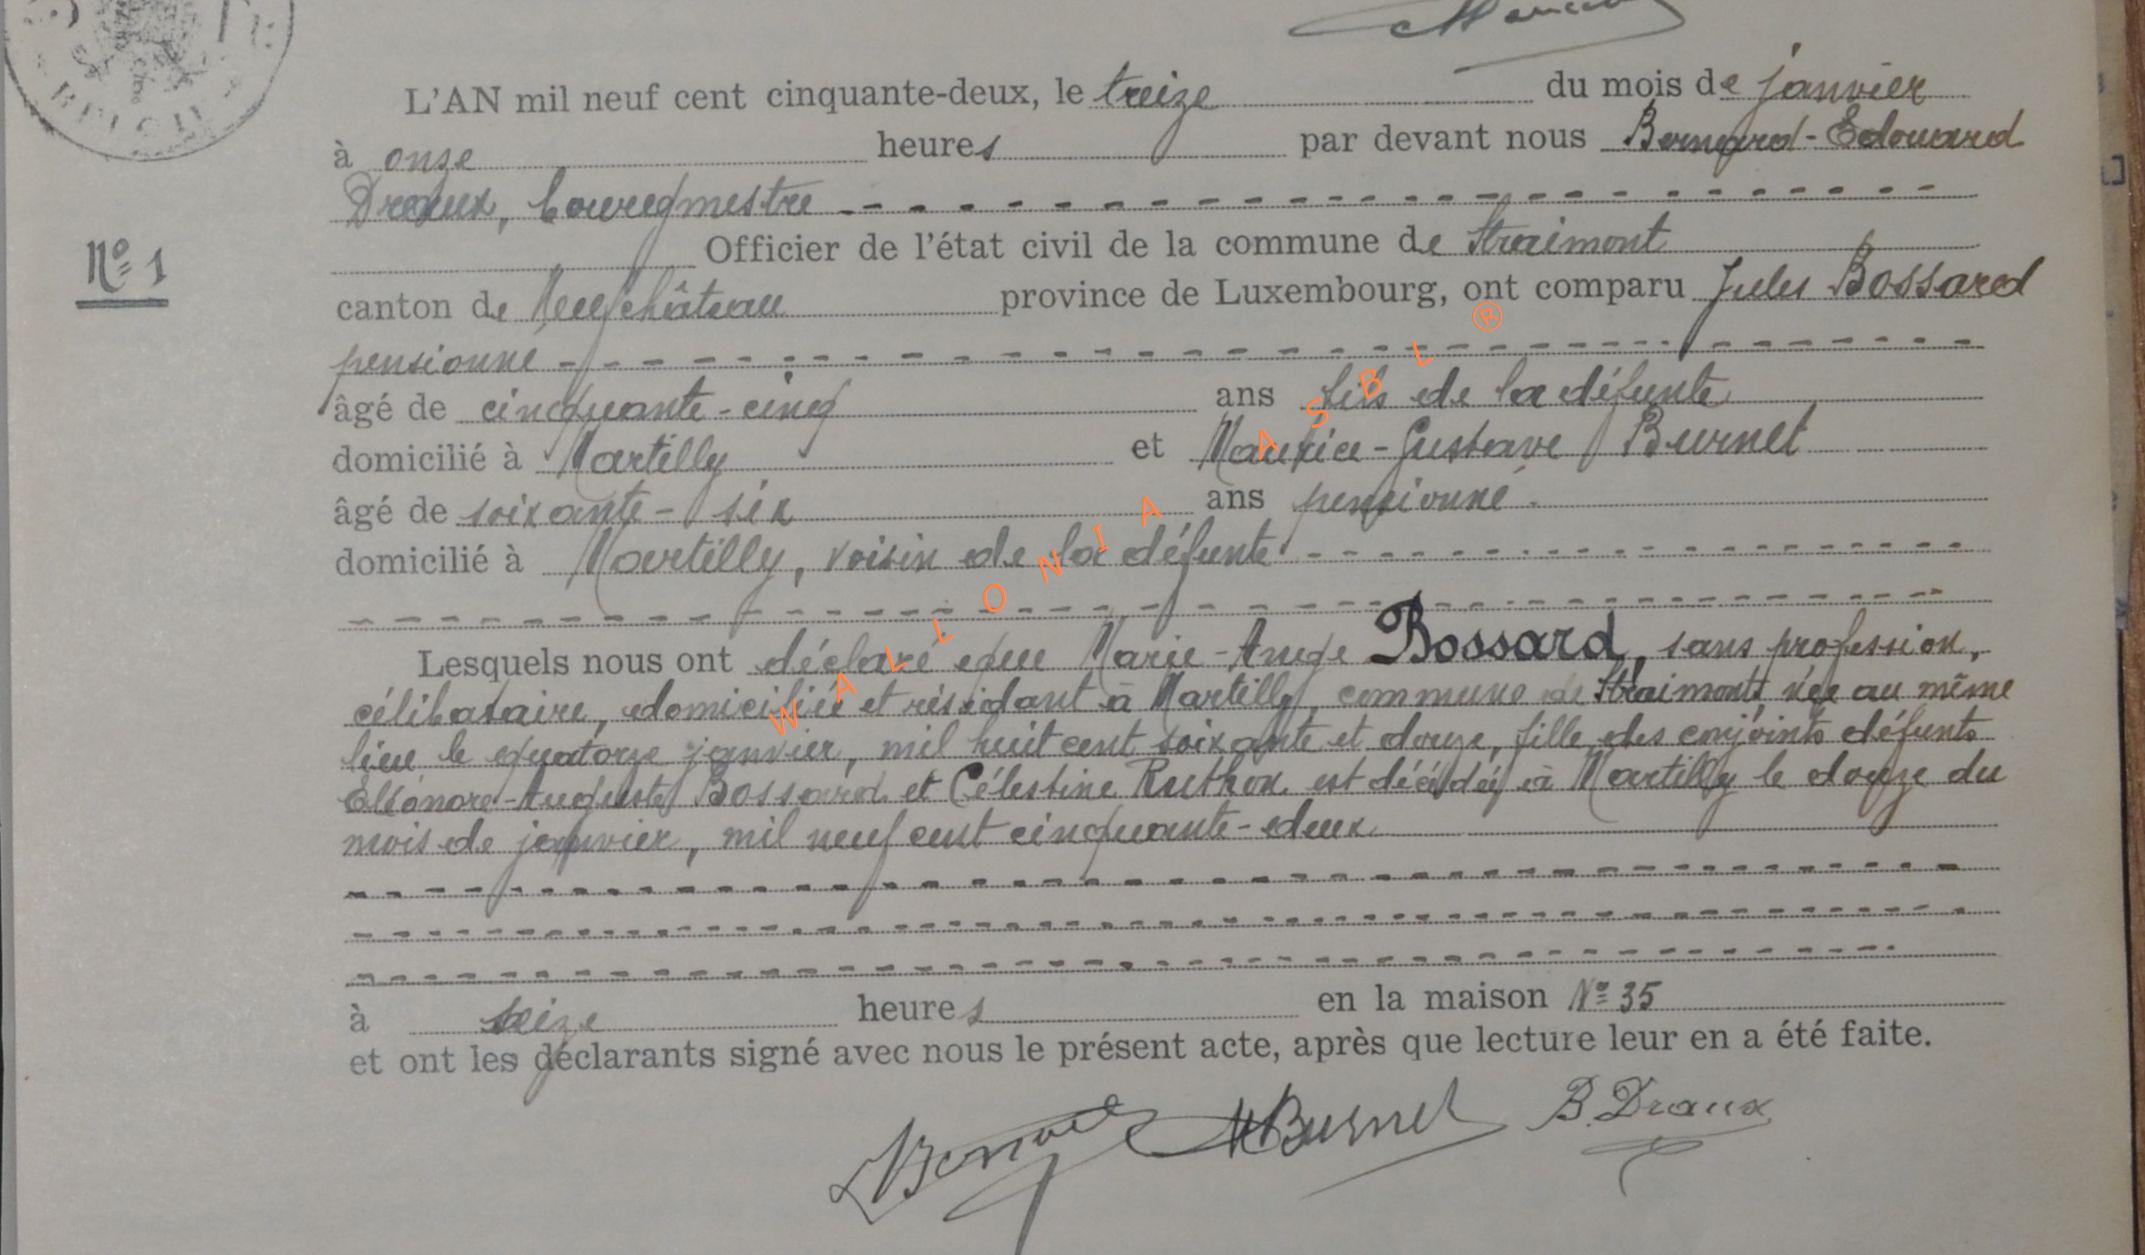 L'AN mil neuf cent cinquante-deux, le treize du mois de janvier
à onze heures par devant nous Bernard-Edouard
Draux, bourgmestre
Nº 1
Officier de l'état civil de la commune de Straimont
canton de Neufchâteau province de Luxembourg, ont comparu Jules Bossard
pensionné
âgé de cinquante-cinq ans fils de la défunte
domicilié à Martilly et Maurice-Gustave Burnet
âgé de soixante-six ans pensionné.
domicilié à Martilly, voisin de la défunte
Lesquels nous ont déclaré que Marie-Ange Bossard, sans profession,
célibataire, domiciliée et résidant à Martilly, commune de Straimont, née au même
lieu le quatorze janvier, mil huit cent soixante et douze, fille des conjoints défunts
Eléonore-Auguste Bossard et Célestine Ruthon est décédée à Martilly le douze du
mois de janvier, mil neuf cent cinquante-deux
à seize heures en la maison Nº 35
et ont les déclarants signé avec nous le présent acte, après que lecture leur en a été faite.
MBurnet B. Draux
WALLONIA ASBL ®